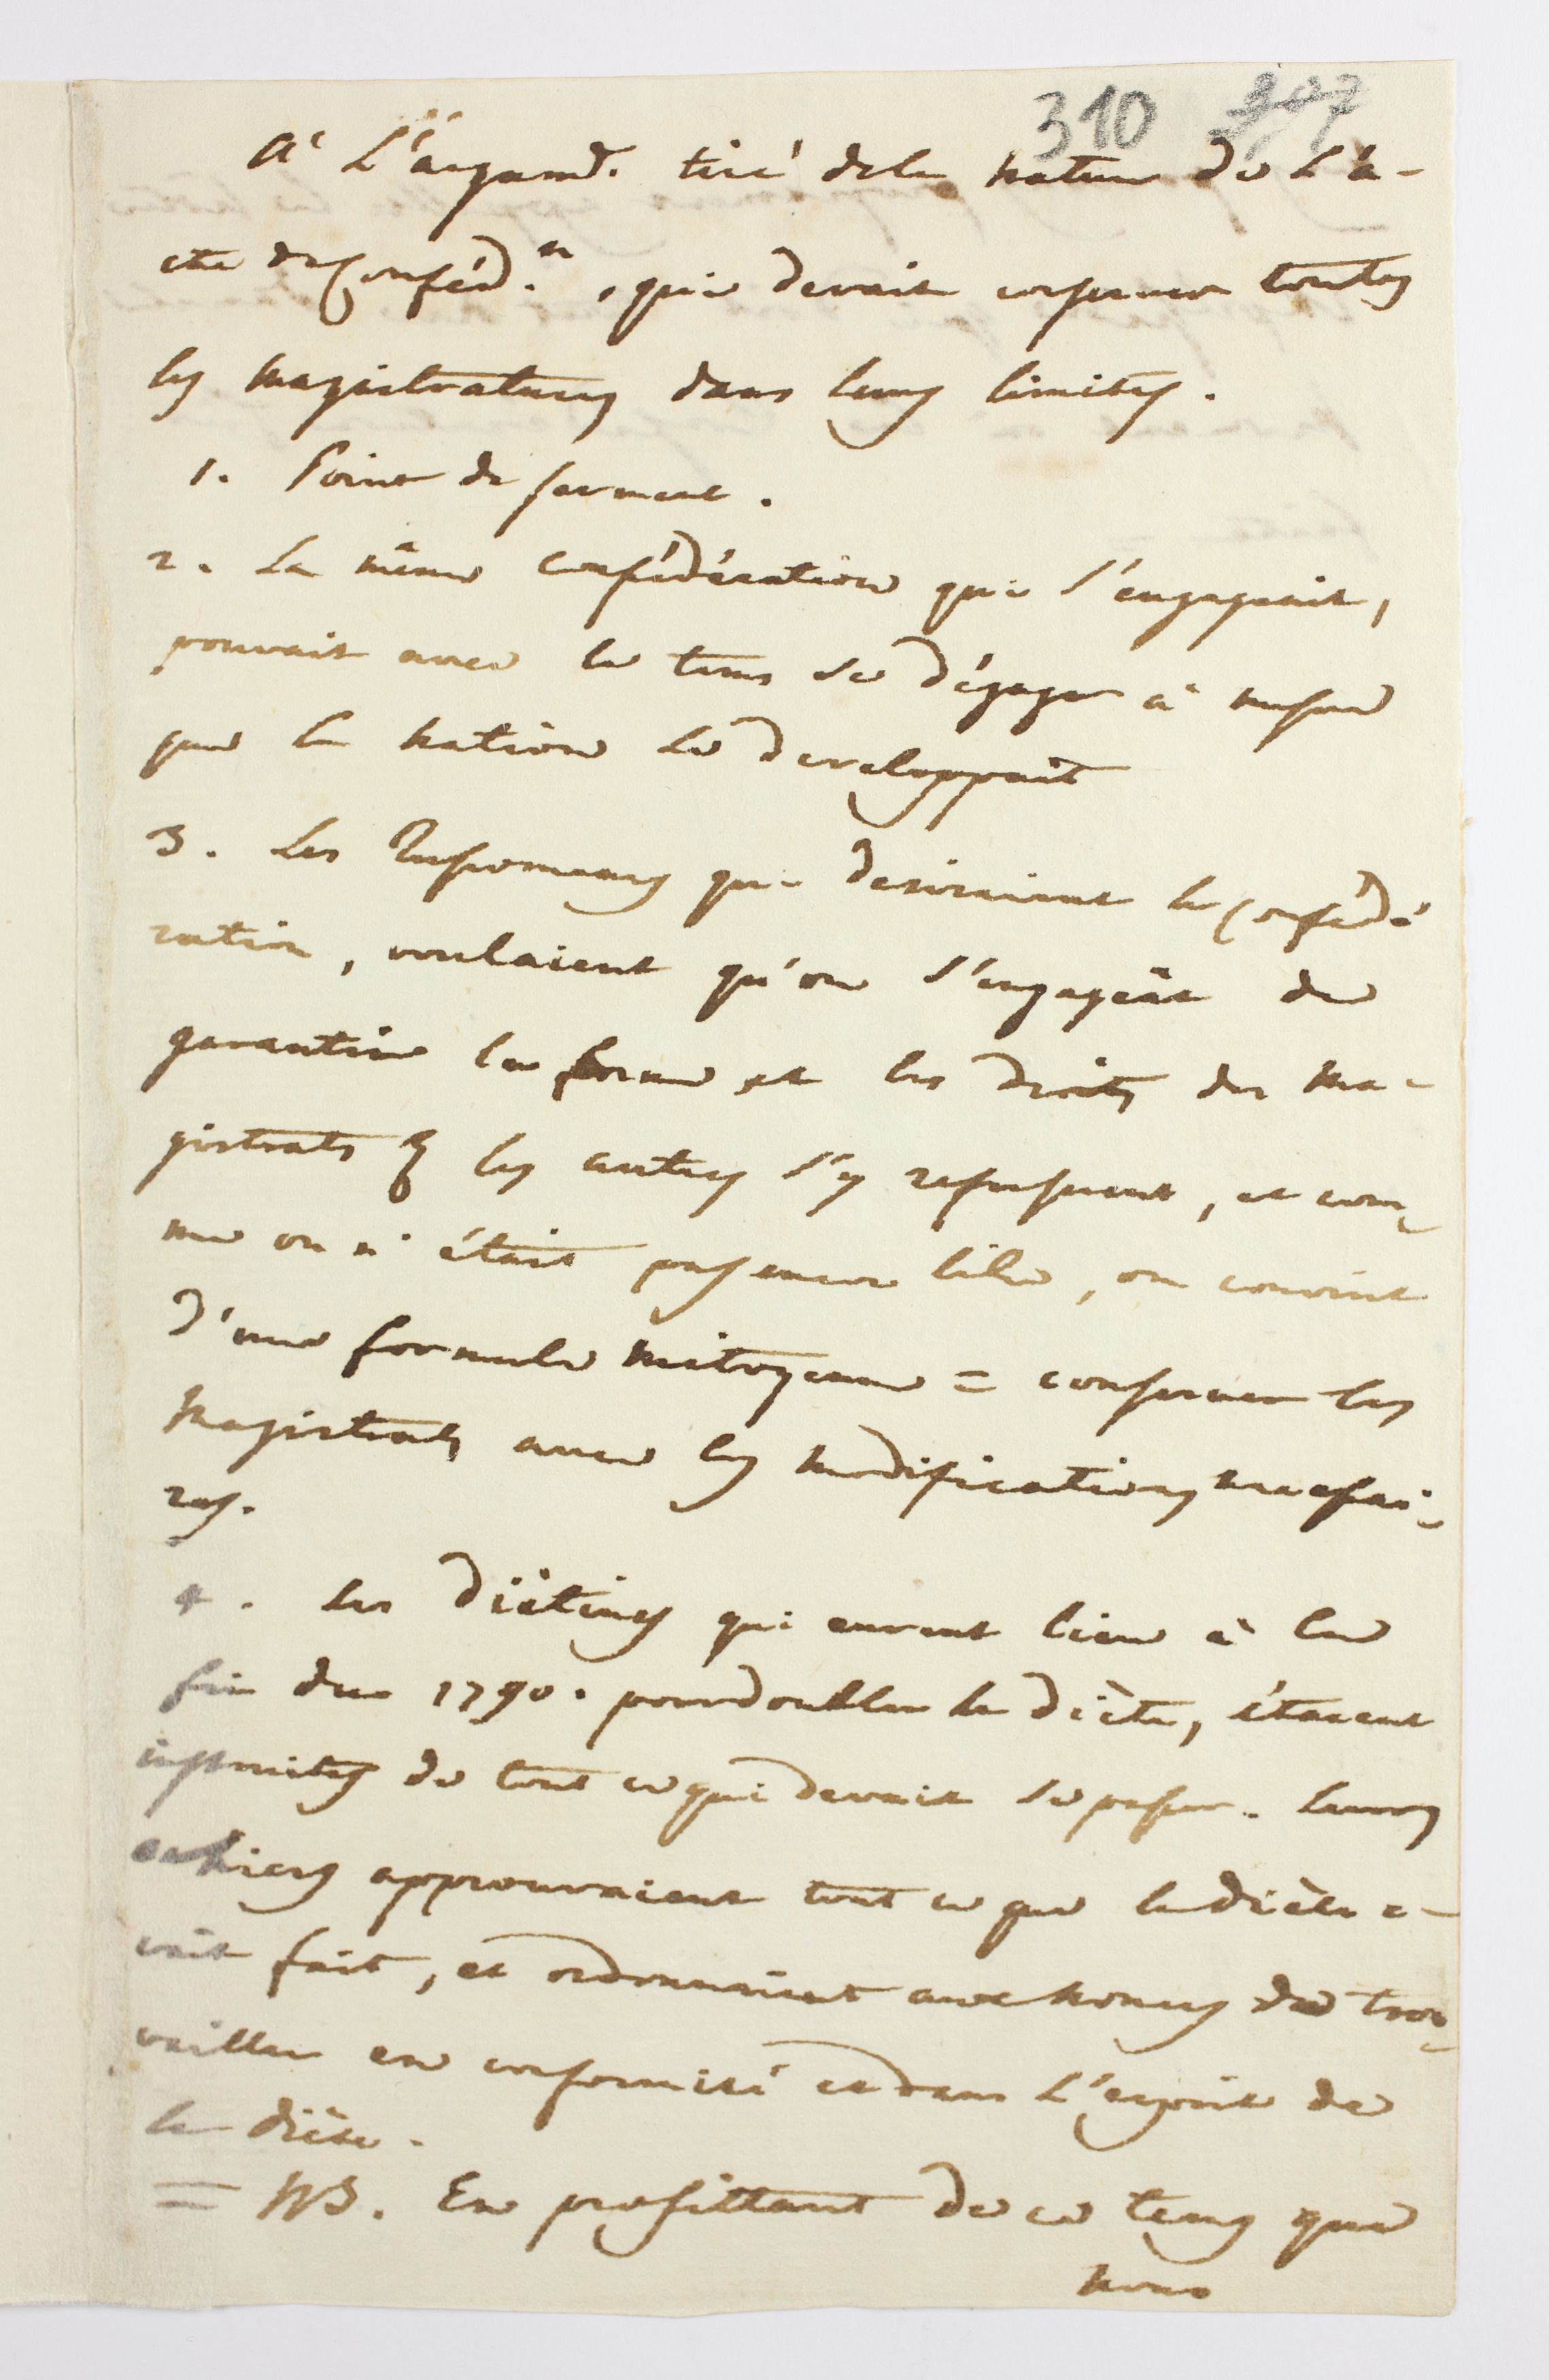 310 307
A' L'argumt. tiré dela nature de L'a-
cte de Conféd.n, qui devait conserver toutes
les magistratures dans leurs limites.
1. Point de serment.
2. La même confédération qui s'engageait,
pouvait avec le tems se dégager à mesure
que la nation se developpait
3. Les qui desiraient la Confédé
ration, voulaient qu'on s'engageât de
garantir la forme et les droits des ma-
gistrats les autres s'y refuserent, et com-
me on n'était pas encore libre, on convint
d'une formule mitoyenne = conserver les
Magistrats avec les modifications necessai-
res.
4. les diétines qui eurent lieu à la
fin de 1790. pour doubler la diète, étaient
instruites de tout ce qui devait se passer. Leurs
cahiers approuvaient tout ce que la diète a-
vait fait, et ordonnaient aux nonces de tra-
vailler en conformité et dans L'esprit de
la diète.
= NB. En profittant de ce tems que
nous